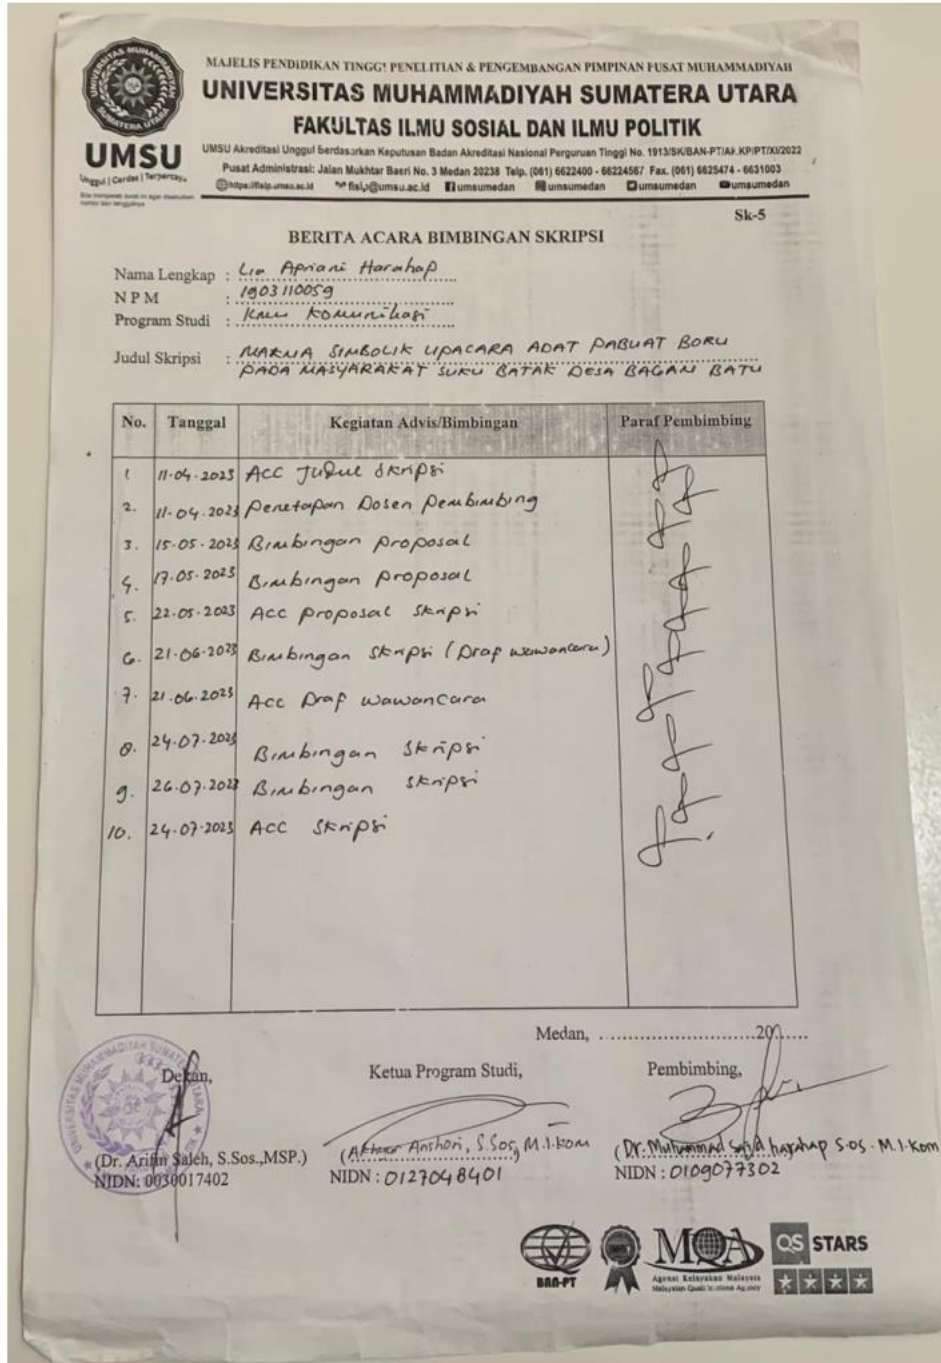 MAJELIS PENDIDIKAN TINGGI PENELITIAN & PENGEMBANGAN PIMPINAN PUSAT MUHAMMADIYAH
UNIVERSITAS MUHAMMADIYAH SUMATERA UTARA
FAKULTAS ILMU SOSIAL DAN ILMU POLITIK
UMSU
Unggul | Cerdas | Terpercaya
UMSU Akreditasi Unggul Berdasarkan Keputusan Badan Akreditasi Nasional Perguruan Tinggi No. 1913/SK/BAN-PT/Ak.KP/PT/XI/2022
Pusat Administrasi: Jalan Mukhtar Basri No. 3 Medan 20238 Telp. (061) 6622400 - 66224567 Fax. (061) 6625474 - 6631003
https://fisip.umsu.ac.id fisip@umsu.ac.id umsumedan umsumedan umsumedan umsumedan
Sk-5
BERITA ACARA BIMBINGAN SKRIPSI
Nama Lengkap : Lia Apriani Harahap
NPM : 1903110059
Program Studi : Ilmu Komunikasi
Judul Skripsi : MAKNA SIMBOLIK UPACARA ADAT PABUAT BORU
PADA MASYARAKAT SUKU BATAK DESA BAGAN BATU
No. Tanggal Kegiatan Advis/Bimbingan Paraf Pembimbing
1 11-04-2023 ACC Judul Skripsi
2. 11-04-2023 Penetapan Dosen Pembimbing
3. 15-05-2023 Bimbingan proposal
4. 17-05-2023 Bimbingan proposal
5. 22-05-2023 Acc proposal skripsi
6. 21-06-2023 Bimbingan Skripsi (Draf wawancara)
7. 21-06-2023 Acc Draf wawancara
8. 24-07-2023 Bimbingan Skripsi
9. 26-07-2023 Bimbingan Skripsi
10. 24-07-2023 ACC Skripsi
Medan, ..............................20.......
Dekan, Ketua Program Studi, Pembimbing,
(Dr. Arifin Saleh, S.Sos.,MSP.) (Akhyar Anshori, S.Sos, M.I.Kom (Dr. Muhammad Said harahap S.os. M.I.Kom
NIDN: 0030017402 NIDN : 0127048401 NIDN : 0109077302
BAN-PT
MQA
Agensi Kelayakan Malaysia
Malaysian Qualifications Agency
QS STARS